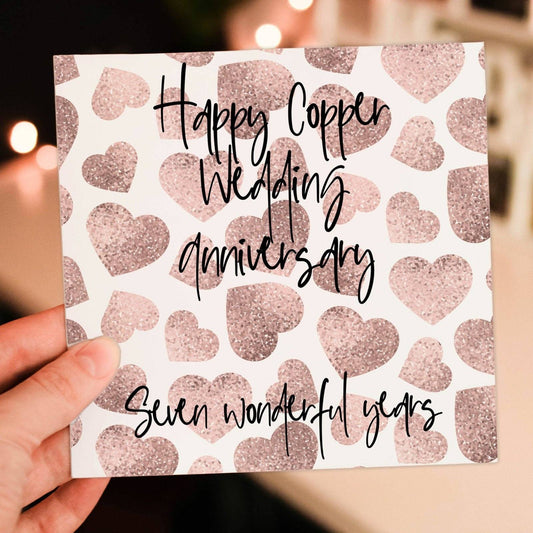 Happy Copper
Wedding
anniversary
Seven wonderful years